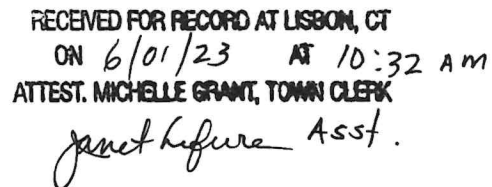 RECEIVED FOR RECORD AT LISBON, CT
ON 6/01/23 AT 10:32 AM
ATTEST. MICHELLE GRANT, TOWN CLERK
Janet Asst.